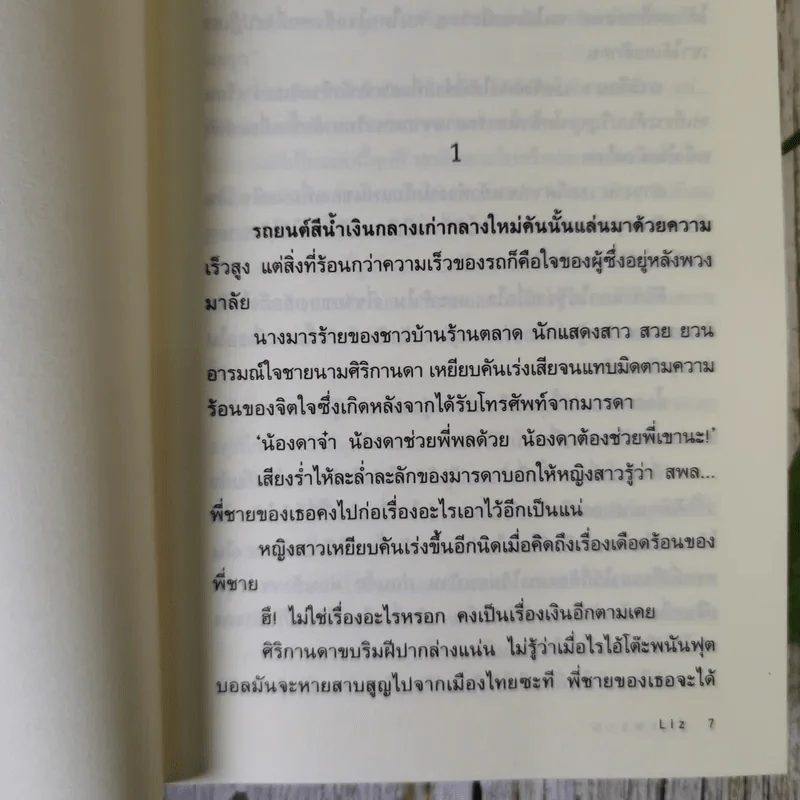 1
รถยนต์สีน้ำเงินกลางเก่ากลางใหม่คันนั้นแล่นมาด้วยความ
เร็วสูง แต่สิ่งที่ร้อนกว่าความเร็วของรถก็คือใจของผู้ซึ่งอยู่หลังพวง
มาลัย
นางมารร้ายของชาวบ้านร้านตลาด นักแสดงสาว สวย ยวน
อารมณ์ใจชายนามศิริกานดา เหยียบคันเร่งเสียจนแทบมิดตามความ
ร้อนของจิตใจซึ่งเกิดหลังจากได้รับโทรศัพท์จากมารดา
‘น้องดาจ๋า น้องดาช่วยพี่พลด้วย น้องดาต้องช่วยพี่เขานะ!’
เสียงร่ำไห้ละล่ำละลักของมารดาบอกให้หญิงสาวรู้ว่า สพล...
พี่ชายของเธอคงไปก่อเรื่องอะไรเอาไว้อีกเป็นแน่
หญิงสาวเหยียบคันเร่งขึ้นอีกนิดเมื่อคิดถึงเรื่องเดือดร้อนของ
พี่ชาย
ฮึ! ไม่ใช่เรื่องอะไรหรอก คงเป็นเรื่องเงินอีกตามเคย
ศิริกานดาขบริมฝีปากล่างแน่น ไม่รู้ว่าเมื่อไรไอ้โต๊ะพนันฟุต
บอลมันจะหายสาบสูญไปจากเมืองไทยซะที พี่ชายของเธอจะได้
Liz 7